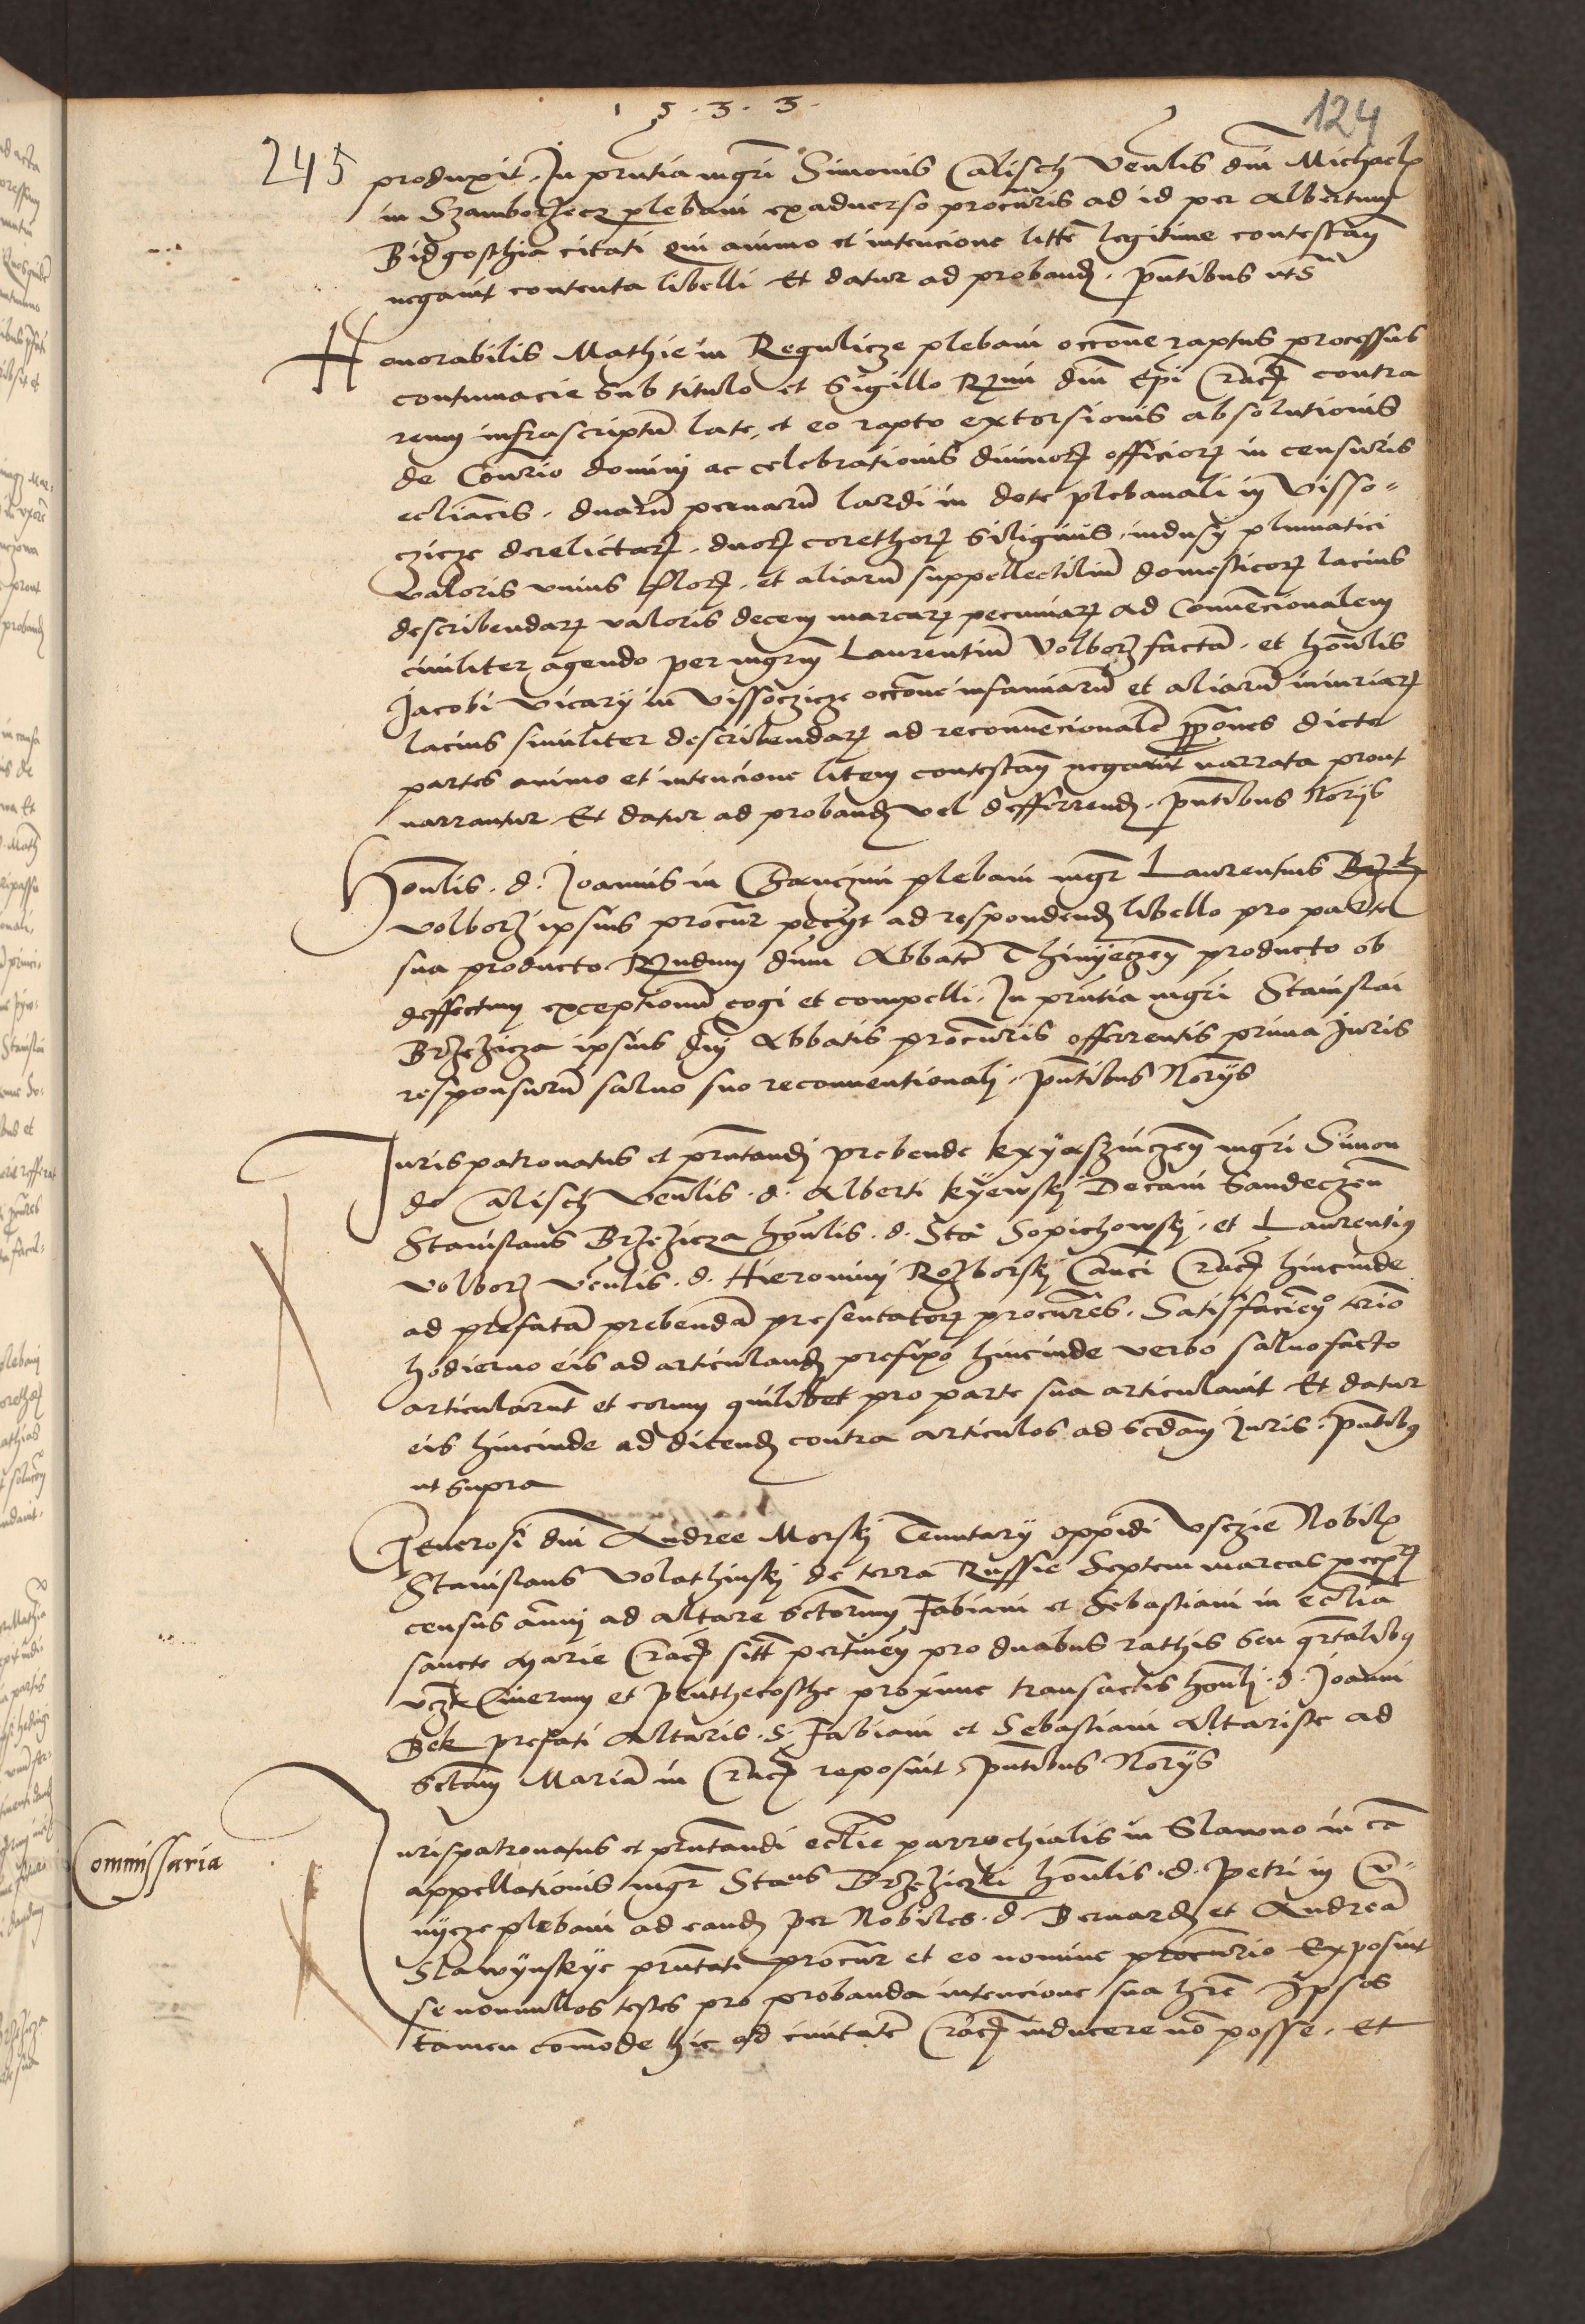 1 5 . 3 . 3 .
124
245
produxit, In pñtia mgri Simonis Calisch Veñlis dni Michaelis
in Szamborzecz plebani exaduerso procuris ad id per Albertum
Bidgosthia citati qui animo et intencione litte legitime contestañ
negauit contenta libelli Et datur ad proband. pñtibus vts
Honorabilis Mathie in Regulicze plebani occone raptus processus
contumacie sub titulo et sigillo Rmi dni Epi Crac contra
reum infrascriptum late, et eo rapto extorsionis absolutionis
de Consrio domini ac celebrationis diuinor officior in censuris
ecliacis, duarum pernarum lardi in dote plebanali in Visso-
czicze derelictar, duor corethor siliginis, indusy plumatici
valoris vnius flor, et aliarum suppellectilium domesticor lacius
describendar valoris decem marcar pecuniar ad Conuencionalem
ciuiliter agendo per mgrum Laurentium Volborz factam, et honlis
Jacobi vicary in Vissoczicze occone infamiarum et aliarum iniuriar
lacius similiter describendar ad reconuencionalem ppones dicte
partes animo et intencione litem contestañ negarunt narrata prout
narrantur Et datur ad proband vel defferrend, pñtibus Norys
Honlis . d . Joannis in Czanczin plebani mgr Laurentius
volborz ipsius procur pecyt ad respondend libello pro parte
sua producto Rndum dnm Abbatem Thinyeczen producto ob
deffectum exceptionum cogi et compelli, In pñtia mgri Stanislai
Brzezicza ipsius dni Abbatis procuris offerrentis prima Juris
responsurum saluo suo reconuentionali, pñtibus Norys
Jurispatronatus et pñtandi prebende kxyaszniczen mgri Simon
de Calisch Venlis . d . Alberti kyewski Decani Sandeczen
Stanislaus Brzezicza honlis . d . Sta Sopichowski, et Laurentius
volborz venlis . d . Hieronimi Rozborski Canci Crac hincinde
ad prefatam prebendam presentator procures. Satisfacien terio
hodierno eis ad articuland prefixo hincinde verbo saluo facto
articularunt et eorum quilibet pro parte sua articulauit Et datur
eis hincinde ad dicend contra articulos ad scdam Juris. pñtibus
ut supra
Generosi dni Andree Morski Tenutary oppidi Vsczie Nobilis
Stanislaus Volathinski de terra Russie Septem marcas
census anni ad altare sctorum Fabiani et Sebastiani in ecclia
sancte Marie Crac sitt pertinen pro duabus rathis seu qrtalibus
vcz Cinerum et penthecosthe proxime transactis honli . d . Joanni
Bek prefati Altaris . S . Fabiani et Sebastiani Altariste ad
sctam Mariam in Crac reposuit, pñtibus Norys
Commissaria
Jurispatronatus et pñtandi ecclie parrochialis in Slawno in ca
appellationis mgr Staus Brzeziczki honlis . d . Petri in
plebani ad eand per Nobiles . d . Bernard et Andream
Slawynskye pñtati procur et eo nomine procurio Exposuit
se nonnullos testes pro probanda intencione sua hre Ipsos
tamen comode hic ad ciuitatem Crac inducere no posse, Et